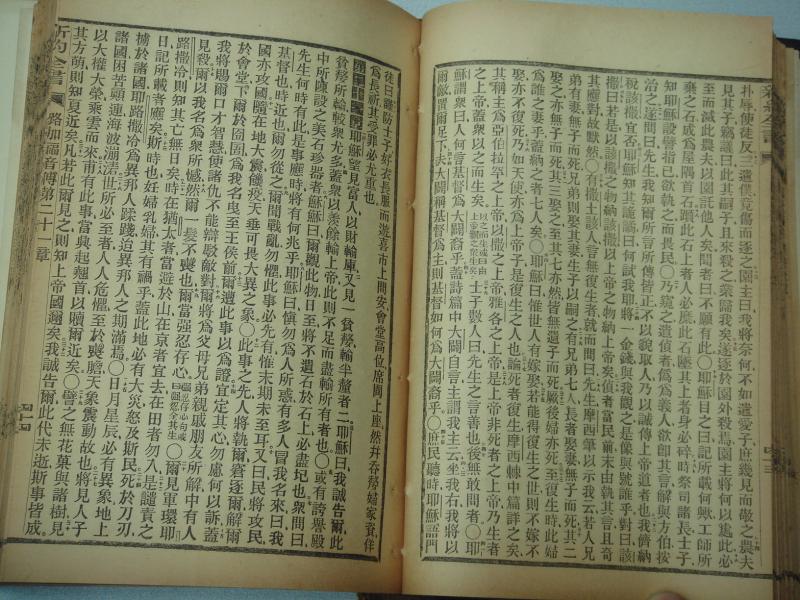 朴辱使徒反三遣僕竟傷而逐之園主曰我將奈何不如遣愛子庶幾見而敬之農夫
見其子竊議曰此其嗣子且來殺之業歸我矣遂逐於園外殺焉園主將何以處此必
至而滅此農夫以園託他人矣聞者曰不願有此〇耶穌目之曰記所載何歟工師所
棄之石成為屋隅首石躓此石上者人必糜此石壓其上者身必碎時祭司諸長士子
知耶穌設譬指己欲執之而畏民〇乃窺之遣偵者僞為義人欲卽其言解與方伯按
治之遂問曰先生我知爾所言所傳皆正不以貌取人乃以誠傳上帝道者也我儕納
稅該撒宜否耶穌知其詭譎曰何試我耶將一金錢與我觀之是像與號誰乎對曰該
撒曰若是以該撒之物納該撒以上帝之物納上帝矣偵者當民前未由執其言且奇
其應對故默然〇有撒土該人言無復生者就而問曰先生摩西筆以示我云若人兄
弟有妻無子而死兄弟則娶其妻生子以嗣之有兄弟七人長者娶妻無子而死其二
娶之亦無子而死其三娶之至其七亦然皆無遺子而死厥後婦亦死至復生時此婦
為誰之妻乎蓋納之者七人矣〇耶穌曰惟世人有嫁娶若能得復生之世則不嫁不
娶亦不復死乃如天使亦為上帝子是復生之人也論死者復生摩西棘中篇詳之矣
稱主為亞伯拉罕之上帝以撒之上帝雅各之上帝是上帝非死者之上帝乃生者
之上帝蓋以之而生矣以之而生或曰由上帝觀之衆生矣士子數人曰先生之言善也後無敢問者〇耶
穌謂衆曰人何言基督為大闢裔乎蓋詩篇中大闢自言主謂我主云坐我右我將以
爾敵置爾足下夫大闢稱基督為主則基督如何為大闢裔乎〇庶民聽時耶穌語門
徒曰謹防士子好衣長服而遊喜市上問安會堂高位席間上座然幷吞嫠婦家資佯
為長祈其受罪必尤重也
耶穌望見富人以財輸庫又見一貧嫠輸半釐者二耶穌曰我誠告爾此
貧嫠所輸較衆尤多蓋衆以羨餘輸上帝此則不足而盡輸所有者也〇或有誇譽殿
中所陳設之美石珍器者穌曰爾觀此物日至將不遺石於石上必盡圮也衆問曰
先生何時有此是事應時將有何兆乎耶穌曰愼勿為人所惑有多人冒我名來曰我
基督也時近也爾勿從之爾聞戰亂勿懼此事必先有惟末期未至耳又曰民將攻民
國亦攻國隨在地大震饑疫天垂可畏大異之象〇此事之先人將執爾窘逐爾解爾
於會堂下爾於囹圄為我名曳至王侯前爾遭此事以為證宜定其心勿慮何以訴蓋
我將賜爾口才智慧使諸仇不能辯駁敵對爾將為父母兄弟親戚朋友所解中有人
見殺爾以我名為衆所憾然爾一髮不喪也爾當强忍存心爾見軍環耶
路撒冷則知其亡無日矣時在猶太者當遁於山在京者宜去在田者勿入是譴責之
日記所載者應矣斯時也妊婦乳婦其有禍乎蓋此地必有大災怒及斯民死於刀刃
擄於諸國耶路撒冷為異邦人蹂踐迨異邦人之期滿焉〇日月星辰必有異象地上
諸國困苦顚連海波漰湱世所必至者人人危懼至於喪膽天象震動故也將見人子
以大權大榮乘雲而來甫有此事當興起翹首以贖爾近矣〇譬之無花果與諸樹見
其方萌則知夏近矣凡若此爾見之則知上帝國邇矣我誠告爾此代未逝斯事皆成
新約全書 路加福音傳第二十一章